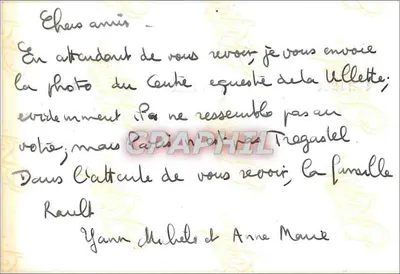 Chers amis -
En attendant de vous revoir, je vous envoie
la photo du Centre equestre de la Villette;
evidemment il ne ressemble pas au
votre; mais Paris n'est pas Tregastel.
GRAPHIL
Dans l'attente de vous revoir, la famille
Rault
Yann Michele et Anne Marie